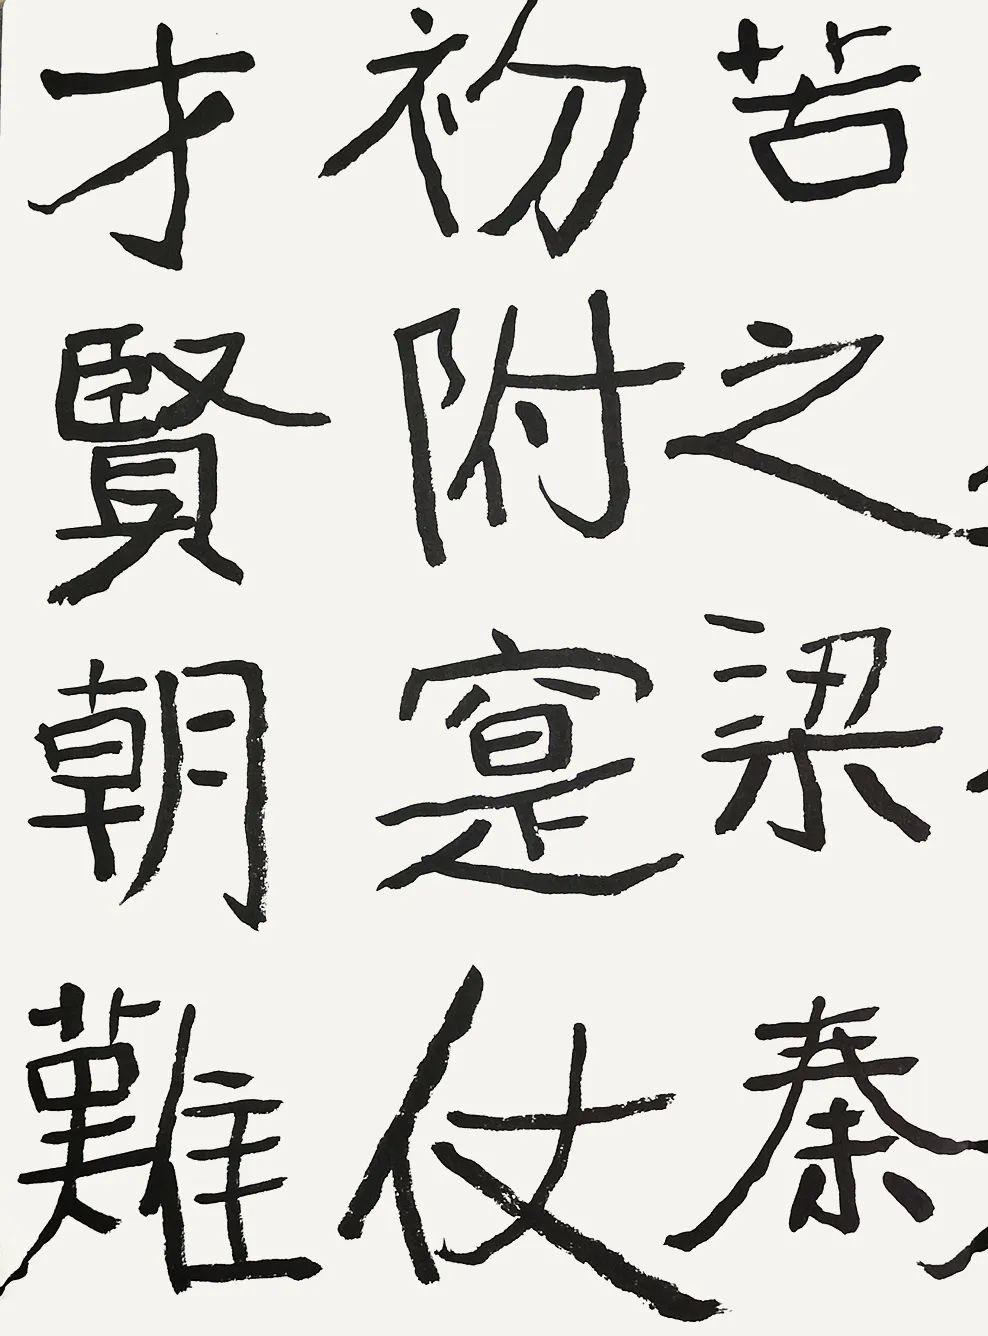 苦之梁秦
初附寔仗
才賢朝難